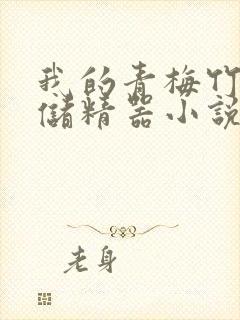 我的青梅竹
儲精器小說
老身